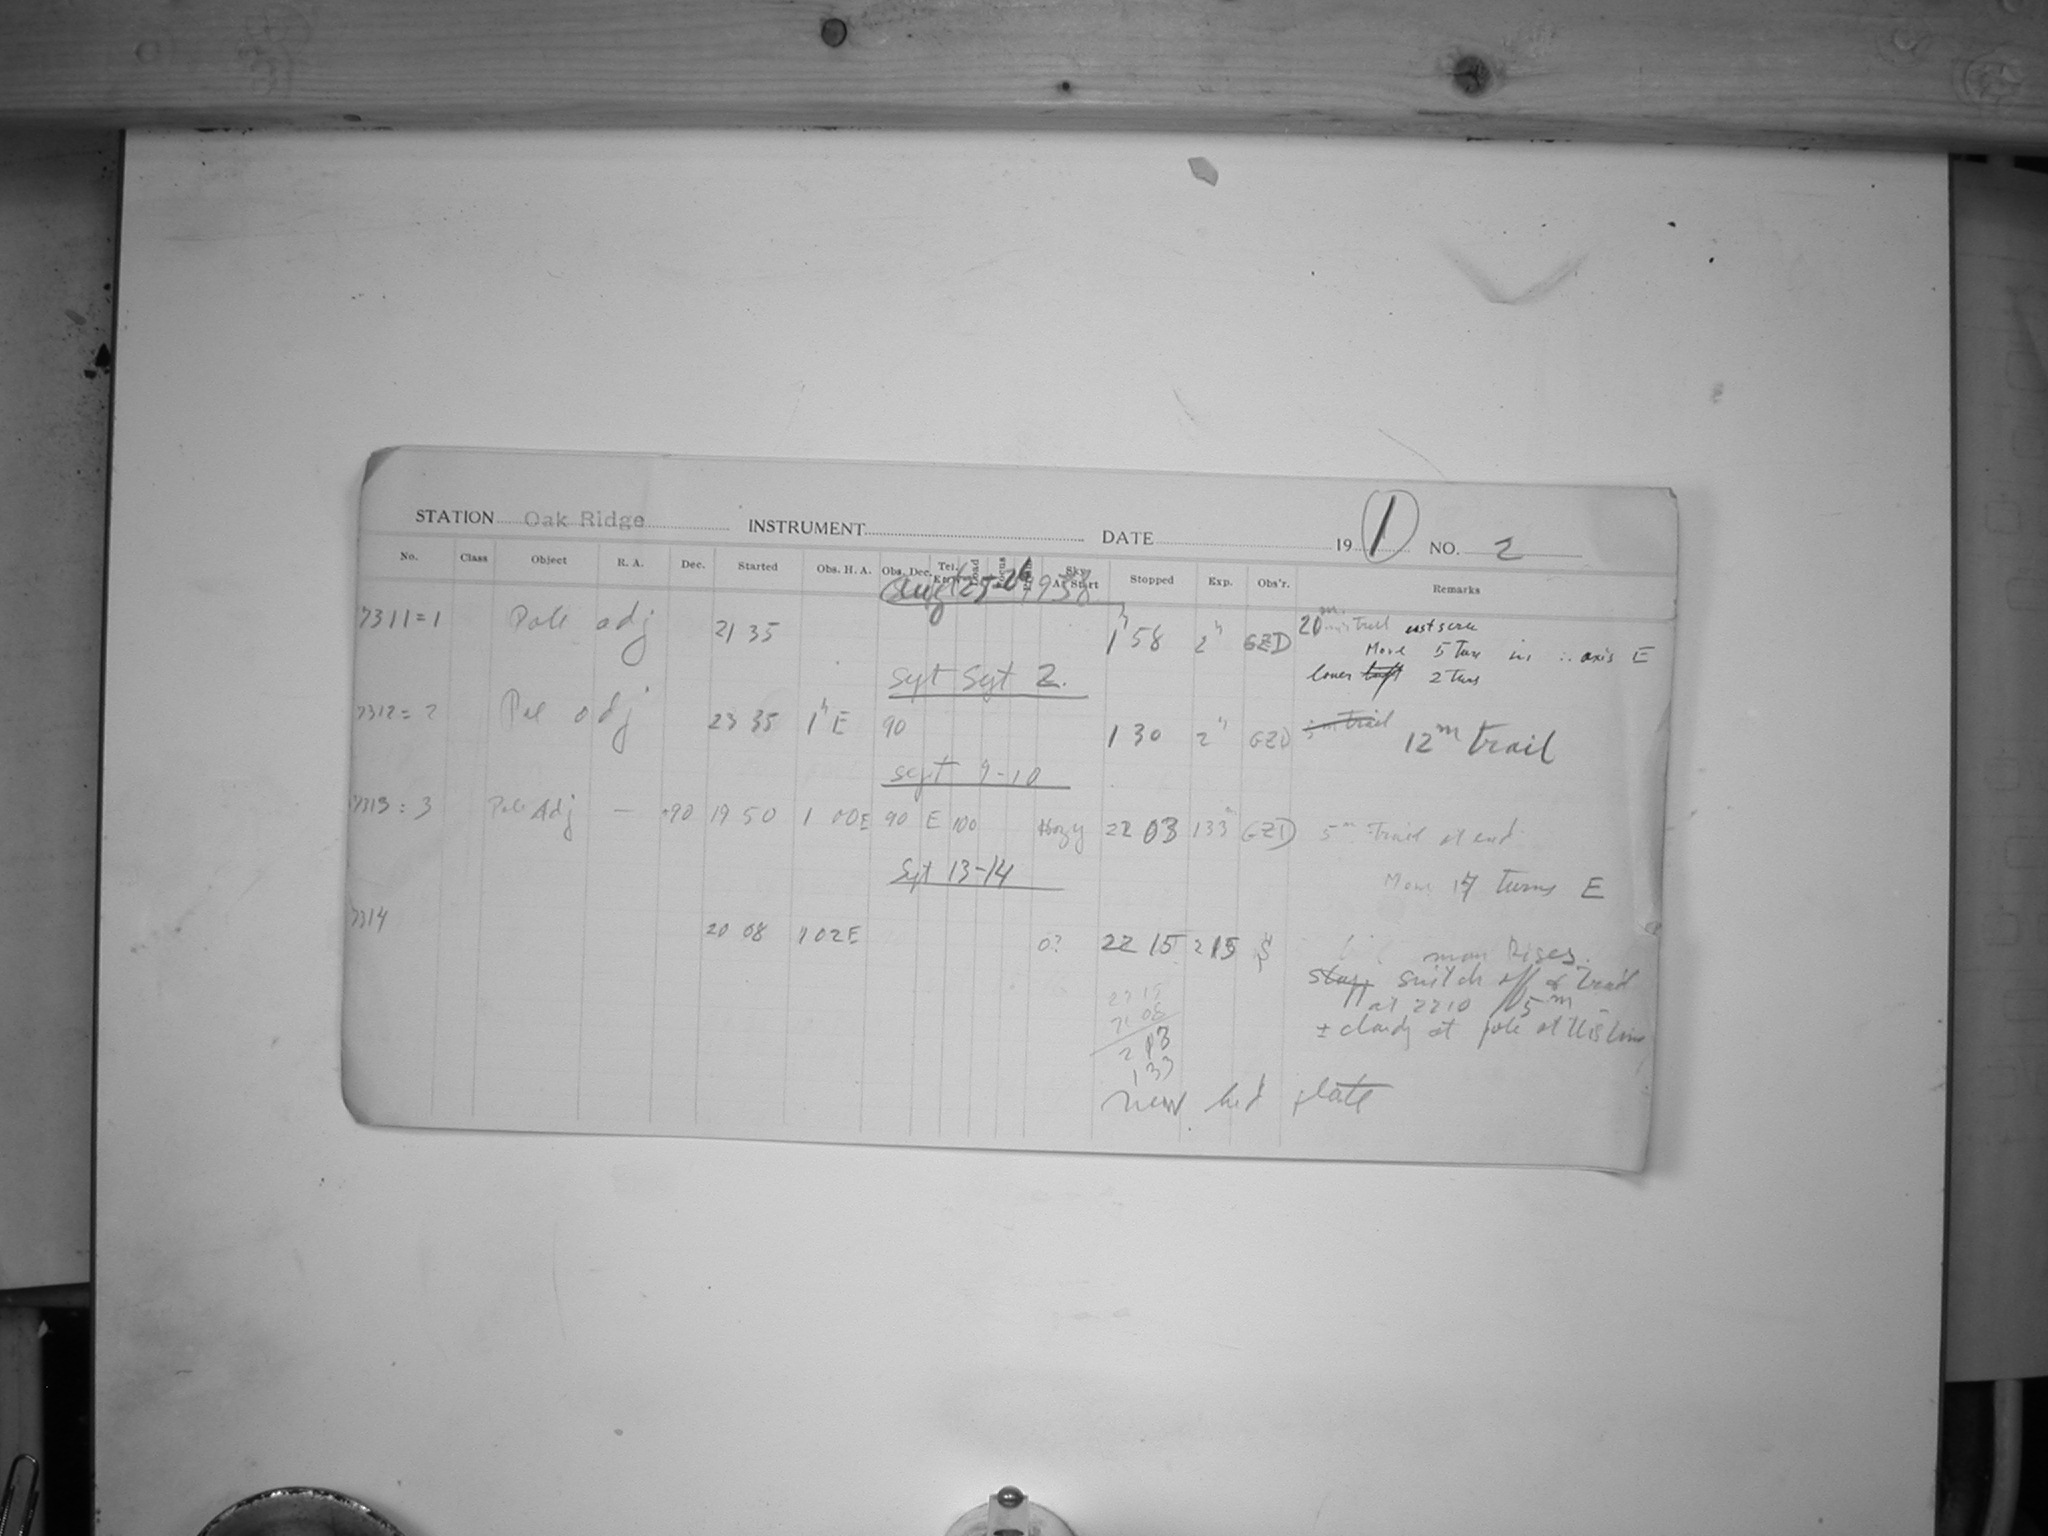 STATION Oak Ridge INSTRUMENT DATE 19 1 NO. 2
No. Class Object R. A. Dec. Started Obs. H. A. Obs. Dec. Tel. Load Focus Sky At Start Stopped Exp. Obs'r. Remarks
Aug 25-26 1938
7311=1 Pole adj 21 35 1h 58 2h GZD 20m trail
Move 5 in axis E
lower 2
Sept Sept 2.
7312=2 Pol adj 23 35 1h E 90 1 30 2h GZD trail 12m trail
Sept 9-10
7313=3 Pole Adj — +90 19 50 1 00E 90 E 100 Hazy 22 03 133m GZD 5m Trail at end
Move 17 turns E
Sept 13-14
7314 20 08 1 02E 0? 22 15 215 moon Rises.
switch off & trail
at 2210 5m
± cloudy at pole at this time
22 15
2 13
133
new plate